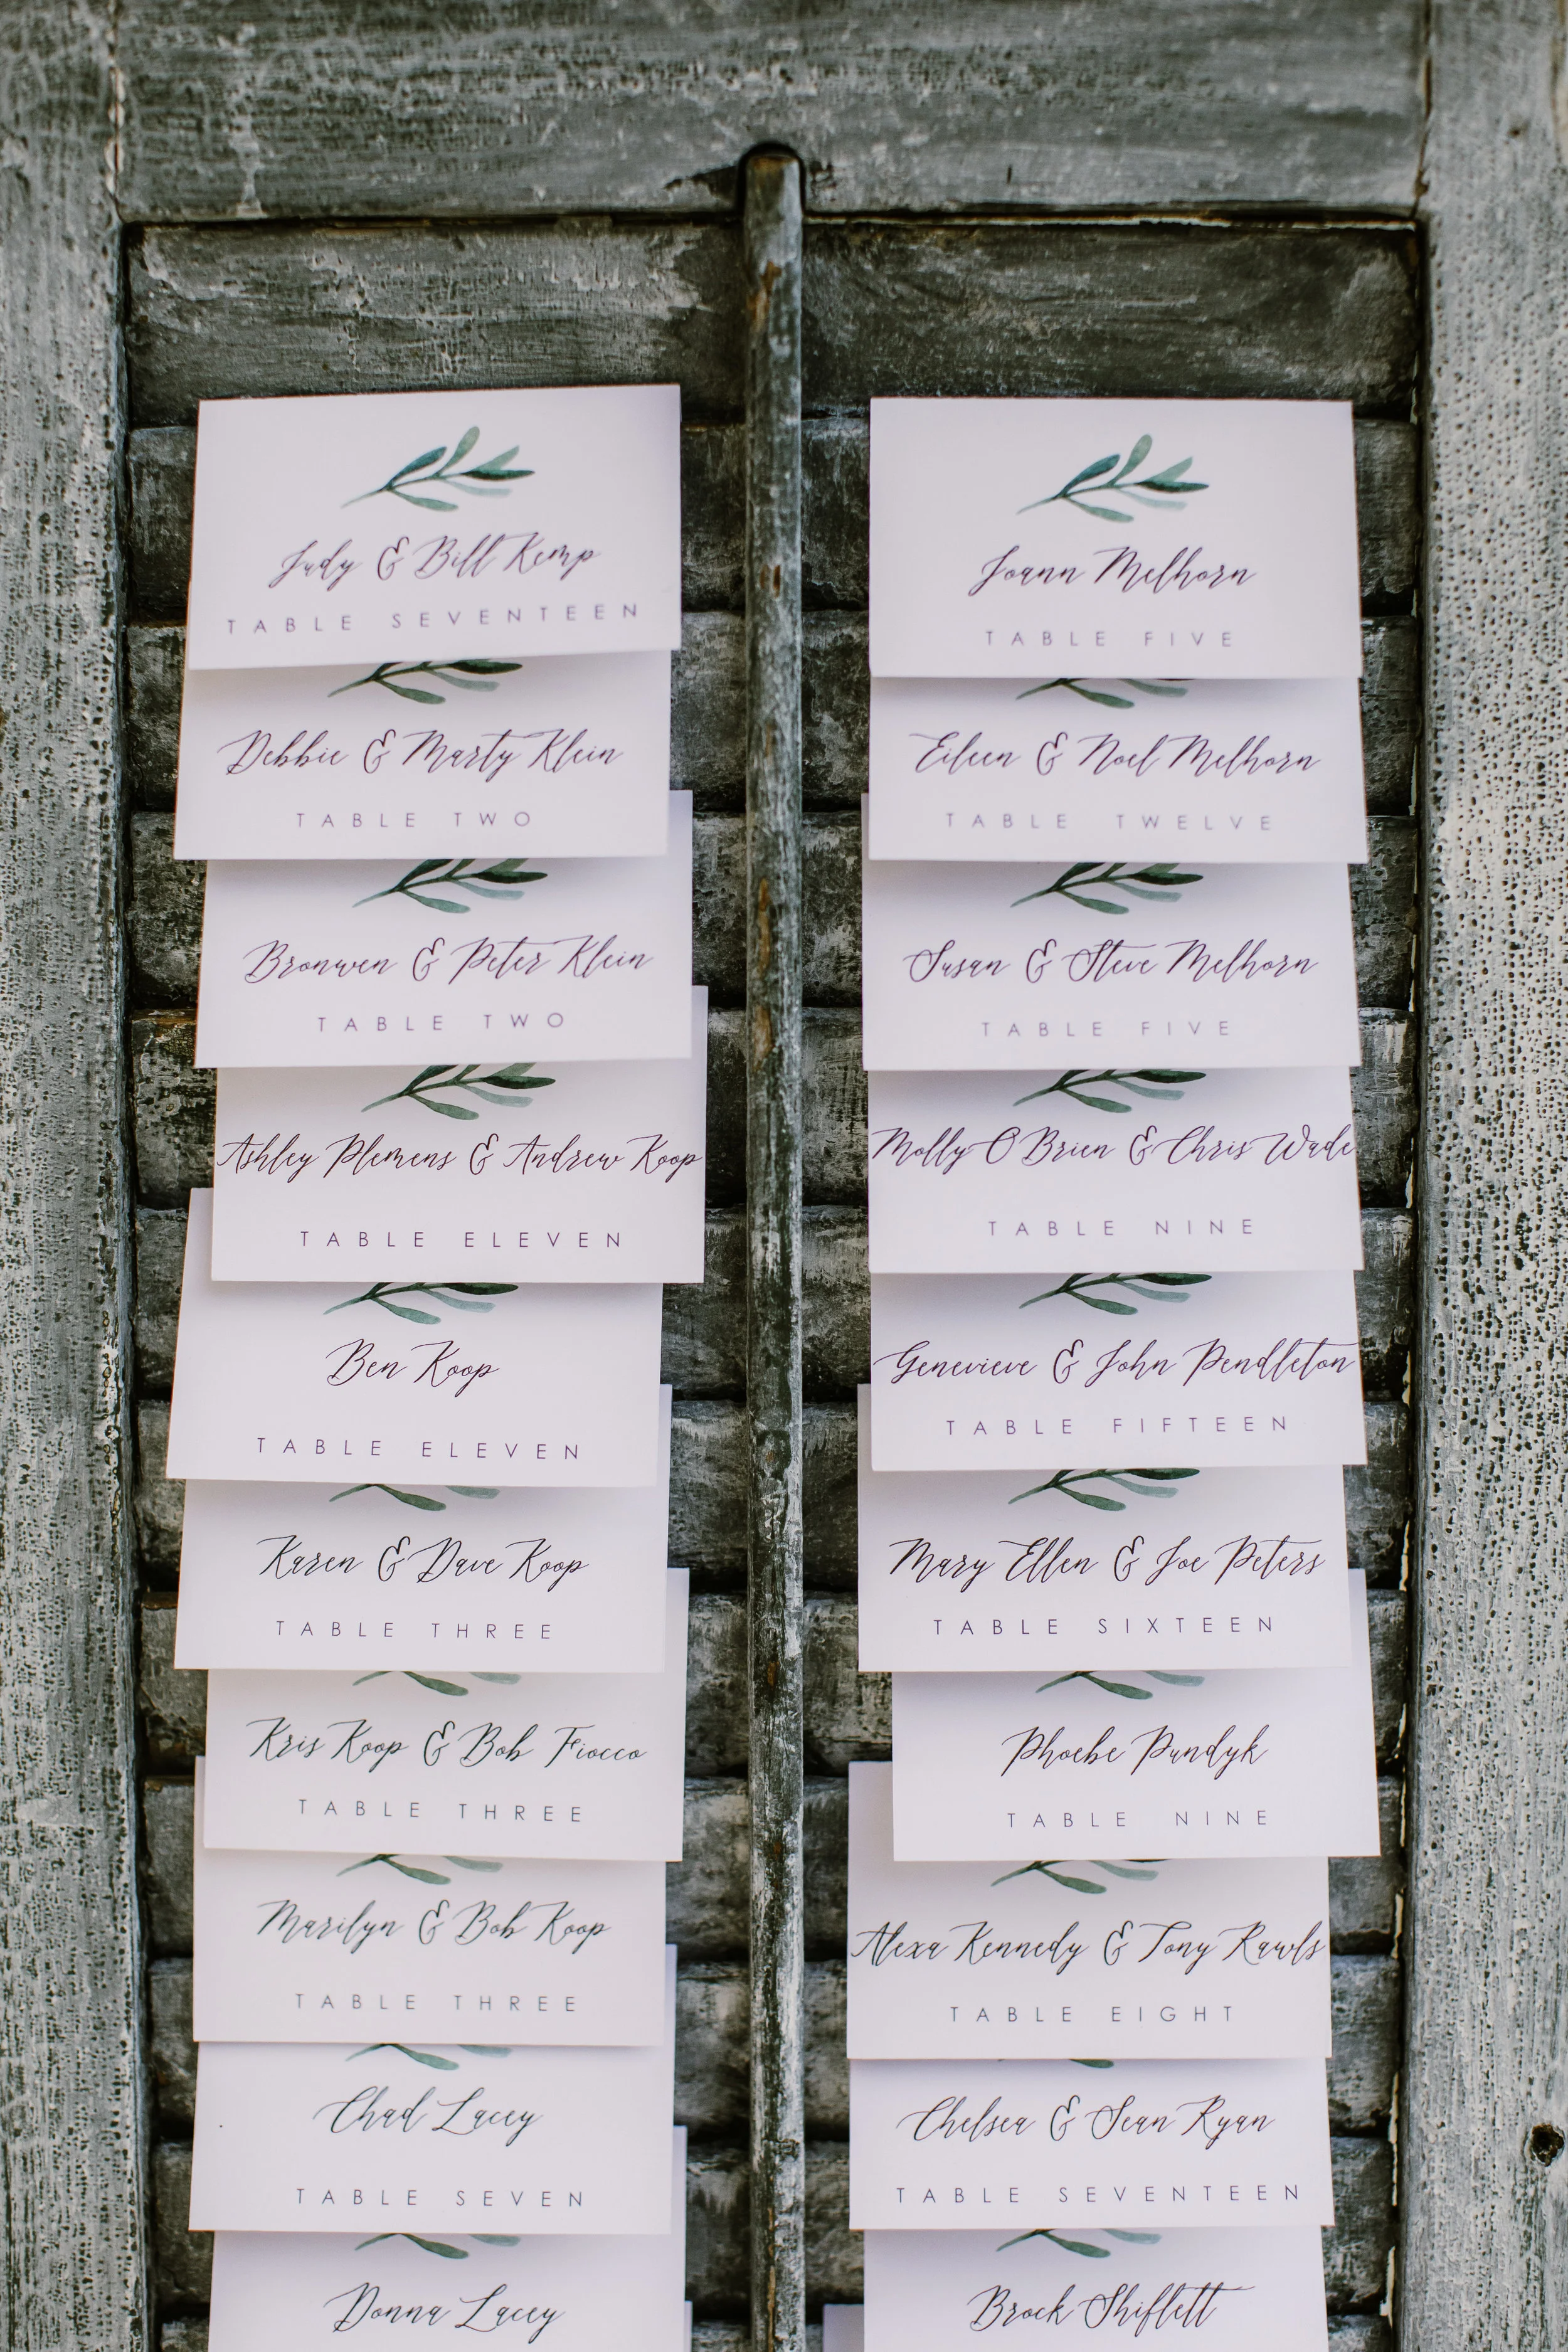 Judy & Bill Kemp
TABLE SEVENTEEN
Debbie & Marty Klein
TABLE TWO
Bronwen & Peter Klein
TABLE TWO
Ashley Plemens & Andrew Koop
TABLE ELEVEN
Ben Koop
TABLE ELEVEN
Karen & Dave Koop
TABLE THREE
Kris Koop & Bob Fiocco
TABLE THREE
Marilyn & Bob Koop
TABLE THREE
Chad Lacey
TABLE SEVEN
Donna Lacey
Joann Melhorn
TABLE FIVE
Eileen & Noel Melhorn
TABLE TWELVE
Susan & Steve Melhorn
TABLE FIVE
Molly O'Brien & Chris Wade
TABLE NINE
Genevieve & John Pendleton
TABLE FIFTEEN
Mary Ellen & Joe Peters
TABLE SIXTEEN
Phoebe Pundyk
TABLE NINE
Alexa Kennedy & Tony Rawls
TABLE EIGHT
Chelsea & Sean Ryan
TABLE SEVENTEEN
Brock Shiflett